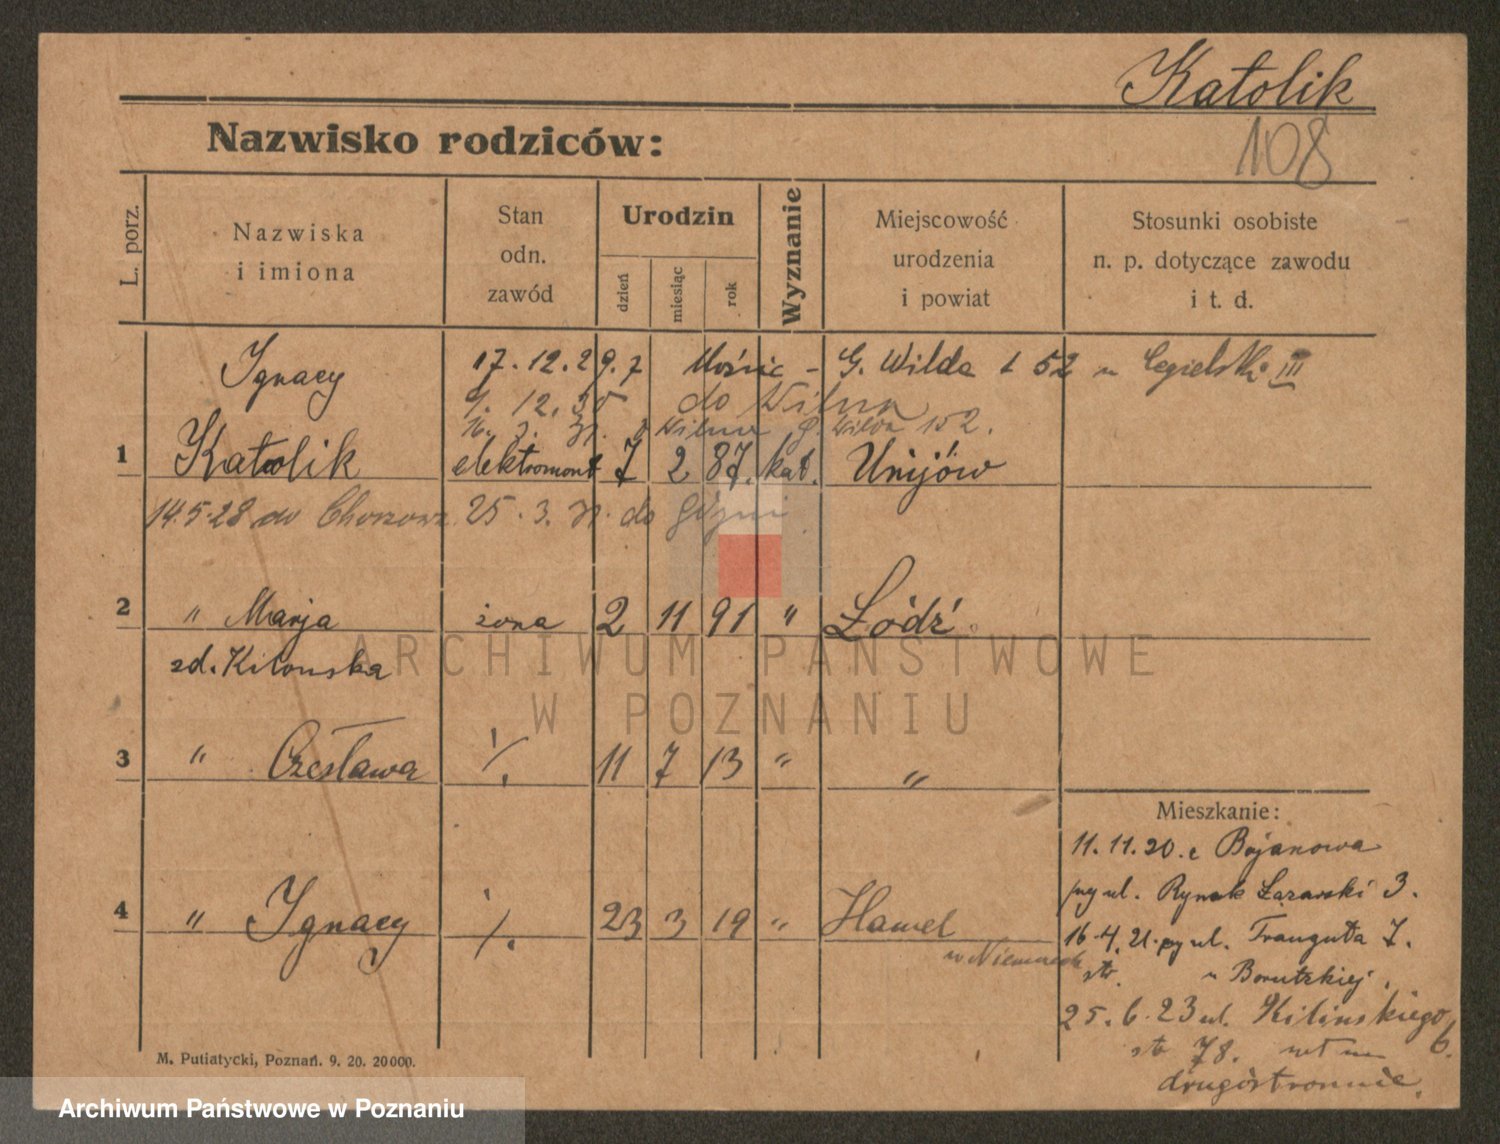 Katolik
108
Nazwisko rodziców:
L. porz.
Nazwiska
i imiona
Stan
odn.
zawód
Urodzin
dzień
miesiąc
rok
Wyznanie
Miejscowość
urodzenia
i powiat
Stosunki osobiste
n. p. dotyczące zawodu
i t. d.
Ignacy 17.12.29. G. Wilda 152 u Cegielski III
12. 35 do Wilna
16. 3. Wilda 152.
1 Katolik elektromont 7 2 87. kat. Unijów
14.5.28 do Chorzowa 25. 3. do Gdyni
2 " Marja żona 2 11 91 " Łódź
zd.
3 " Czesława 1/. 11 7 13 " "
Mieszkanie:
11.11.20. z Bojanowa
ul. Rynek Łazarski 3.
4 " Ignacy 1/. 23 3 19 " Hamel
w Niemczech
16.4.21. ul. Traugutta 7.
str. u
25.6.23 ul. Kilińskiego 6.
str 78.
drugostronnie.
M. Putiatycki, Poznań. 9. 20. 20 000.
ARCHIWUM PAŃSTWOWE
W POZNANIU
Archiwum Państwowe w Poznaniu